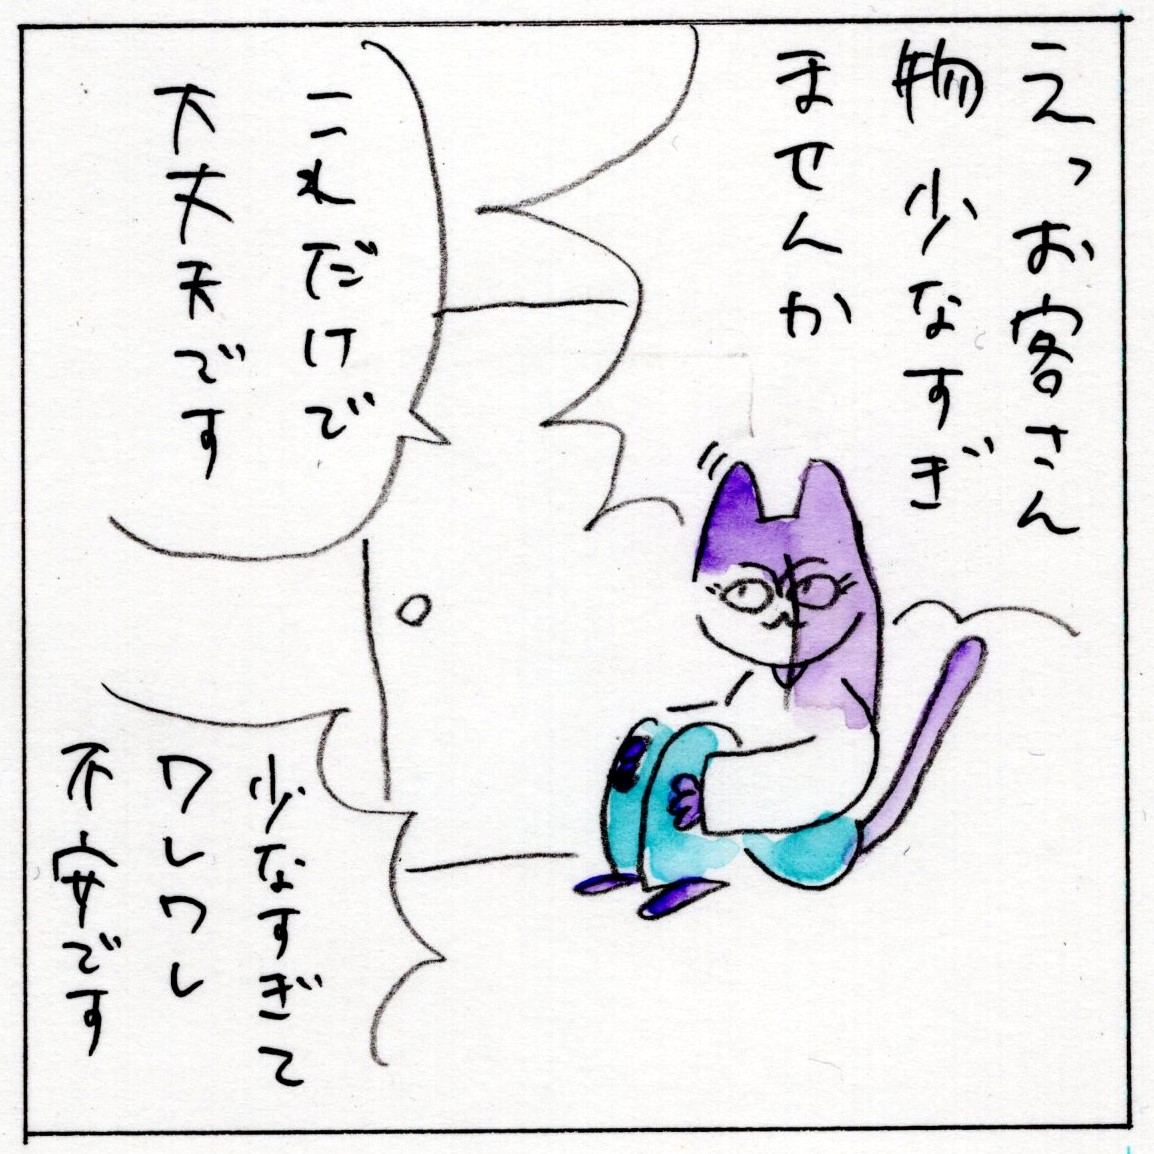 えっお客さん
物少なすぎ
ませんか
これだけで
大丈夫です
少なすぎて
ワレワレ
不安です